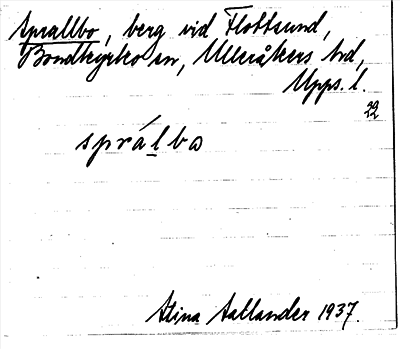 Sprallbo, berg vid Flottsund,
Bondkyrko sn, Ulleråkers hd,
Upps. l.
22
språlbo
Stina Aallander 1937.